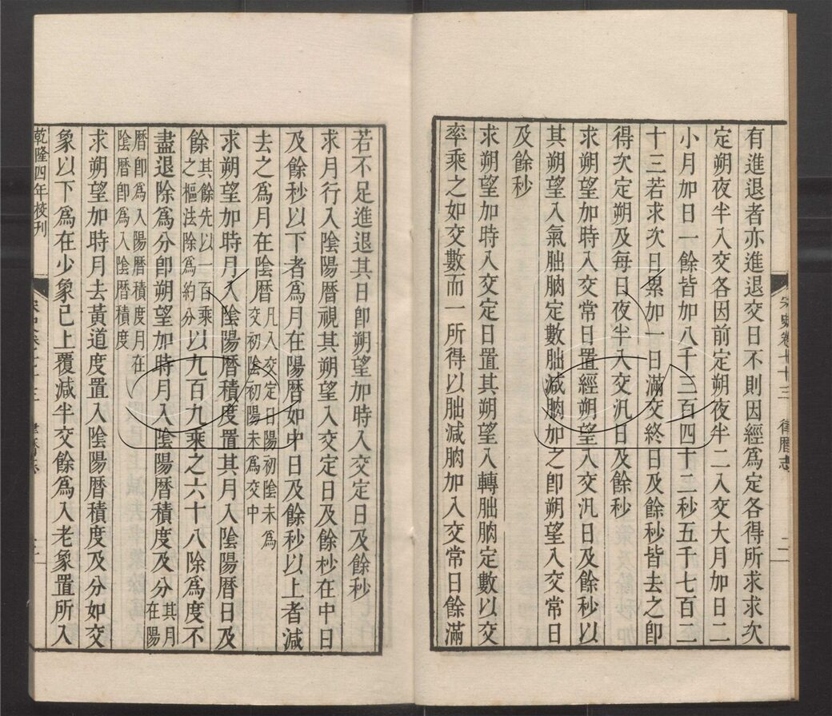 有進退者亦進退交日不則因經爲定各得所求求次
定朔夜半入交各因前定朔夜半二入交大月加日二
小月加日一餘皆加八千三百四十二秒五千七百二
十三若求次日累加一日滿交終日及餘秒皆去之卽
得次定朔及每日夜半入交汎日及餘秒
求朔望加時入交常日置經朔望入交汎日及餘秒以
其朔望入氣朏朒定數朏減朒加之卽朔望入交常日
及餘秒
求朔望加時入交定日置其朔望入轉朏朒定數以交
率乘之如交數而一所得以朏減朒加入交常日餘滿
若不足進退其日卽朔望加時入交定日及餘秒
求月行入陰陽曆視其朔望入交定日及餘秒在中日
及餘秒以下者爲月在陽曆如中日及餘秒以上者減
去之爲月在陰曆凡入交定日陽初陰末爲
交初陰初陽末爲交中
求朔望加時月入陰陽曆積度置其月入陰陽曆日及
餘其餘先以一百乘
之樞法除爲約分以九百九乘之六十八除爲度不
盡退除爲分卽朔望加時月入陰陽曆積度及分其月
在陽
曆卽爲入陽曆積度月在
陰曆卽爲入陰曆積度
求朔望加時月去黃道度置入陰陽曆積度及分如交
象以下爲在少象已上覆減半交餘爲入老象置所入
乾隆四年校刊